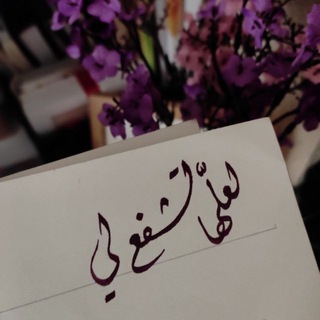 لعلّها تشفع لي